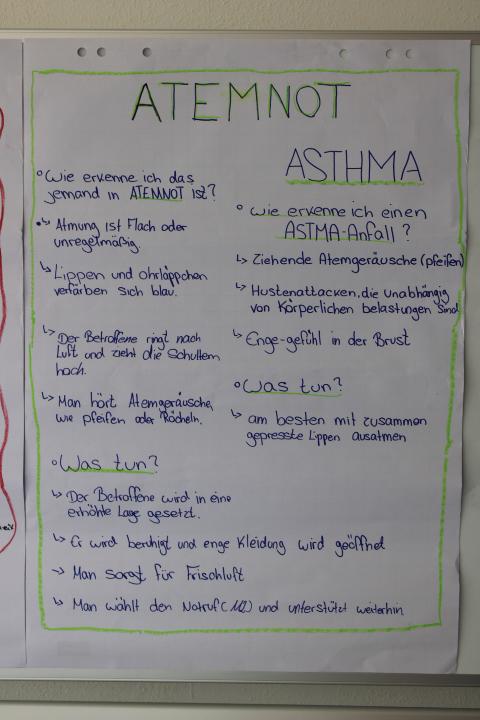 ATEMNOT
° Wie erkenne ich das
jemand in ATEMNOT ist?
↳ Atmung ist Flach oder
unregelmäßig.
↳ Lippen und ohrläppchen
verfärben sich blau.
↳ Der Betroffene ringt nach
Luft und zieht die Schultern
hoch.
↳ Man hört Atemgeräusche,
wie pfeifen oder Röcheln.
° Was tun?
↳ Der Betroffene wird in eine
erhöhte Lage gesetzt.
↳ Er wird beruhigt und enge Kleidung wird geöffnet
→ Man sorgt für Frischluft
↳ Man wählt den Notruf (112) und unterstützt weiterhin
ASTHMA
° Wie erkenne ich einen
ASTMA-Anfall?
↳ Ziehende Atemgeräusche (pfeifen)
↳ Hustenattacken, die unabhängig
von Körperlichen belastungen sind
↳ Enge-gefühl in der Brust
° Was tun?
↳ am besten mit zusammen
gepresste Lippen ausatmen